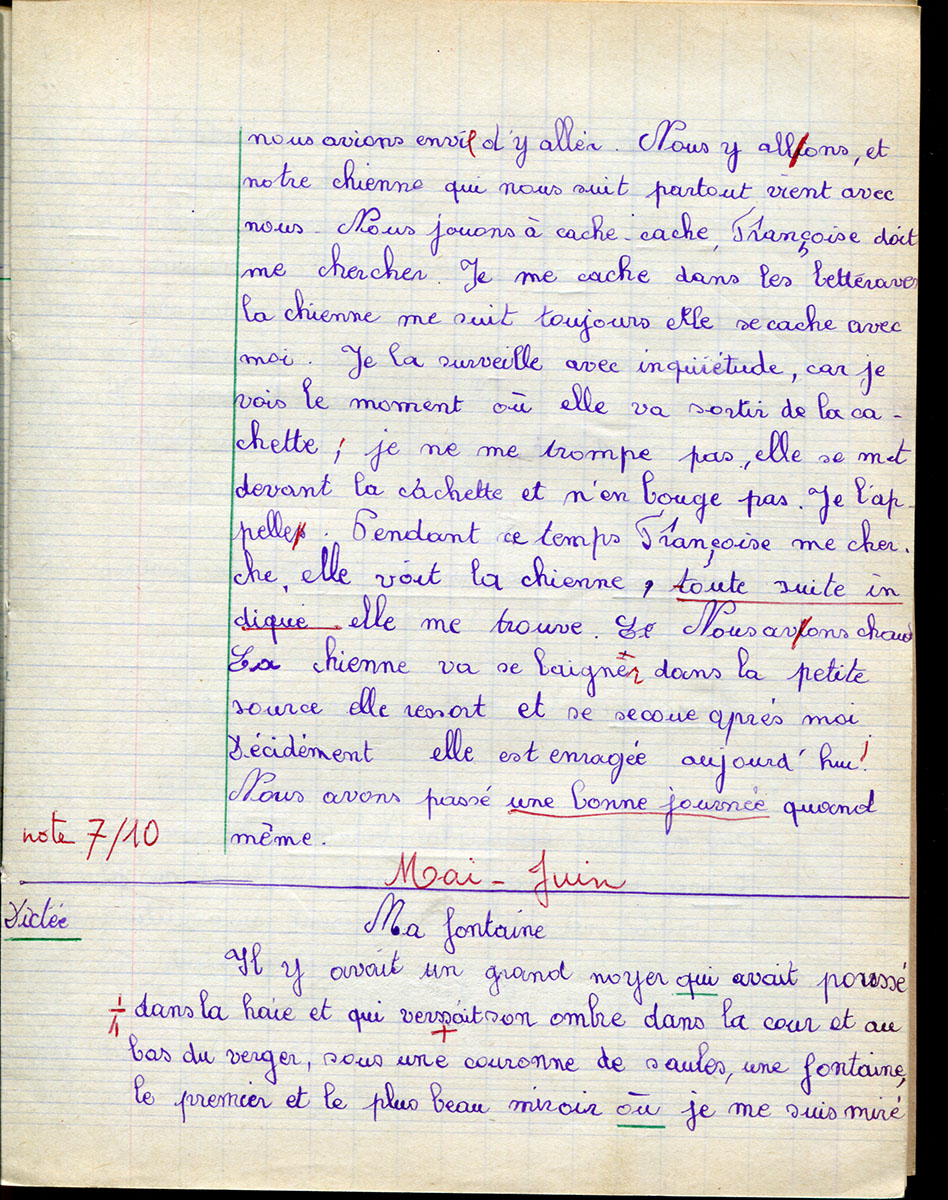 nous avions envie d'y aller. Nous y allons, et
notre chienne qui nous suit partout vient avec
nous. Nous jouons à cache-cache, Françoise doit
me chercher. Je me cache dans les betteraves
la chienne me suit toujours elle se cache avec
moi. Je la surveille avec inquiétude, car je
vois le moment où elle va sortir de la ca-
chette ; je ne me trompe pas, elle se met
devant la cachette et n'en bouge pas. Je l'ap-
pelle. Pendant ce temps Françoise me cher-
che, elle voit la chienne, toute suite in
diqué elle me trouve. Nous avons chaud
La chienne va se baigner dans la petite
source elle ressort et se secoue après moi
Décidément elle est enragée aujourd'hui!
Nous avons passé une bonne journée quand
note 7/10 même.
Mai - Juin
Dictée Ma fontaine
Il y avait un grand noyer qui avait poussé
dans la haie et qui versait son ombre dans la cour et au
bas du verger, sous une couronne de saules, une fontaine,
le premier et le plus beau miroir où je me suis miré